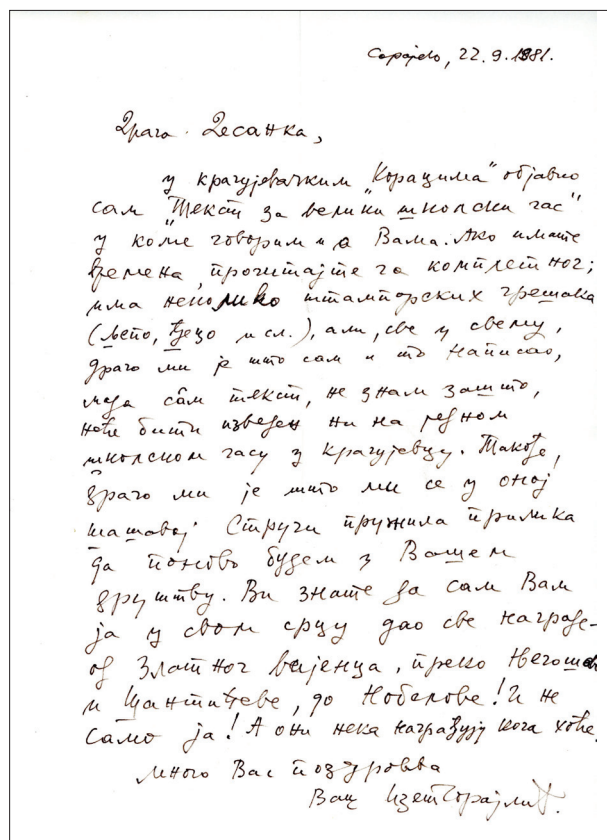 Сарајево, 22. 9. 1981.
Драга Десанка,
у крагујевачким „Корацима“ објавио
сам „Текст за велики школски час“
у коме говорим и о Вама. Ако имате
времена, прочитајте га комплетног;
има неколико штампарских грешака
(љето, ђецо и сл.), али, све у свему,
драго ми је што сам и то написао,
мада сâм текст, не знам зашто,
неће бити изведен ни на једном
школском часу у Крагујевцу. Такође,
драго ми је што ми се у оној
шашавој Стручи пружила прилика
да поново будем у Вашем
друштву. Ви знате да сам Вам
ја у свом срцу дао све награде –
од Златног вијенца, преко Његошеве
и Шантићеве, до Нобелове! И не
само ја! А они нека награђују кога хоће.
Много Вас поздравља
Ваш Изет Сарајлић.